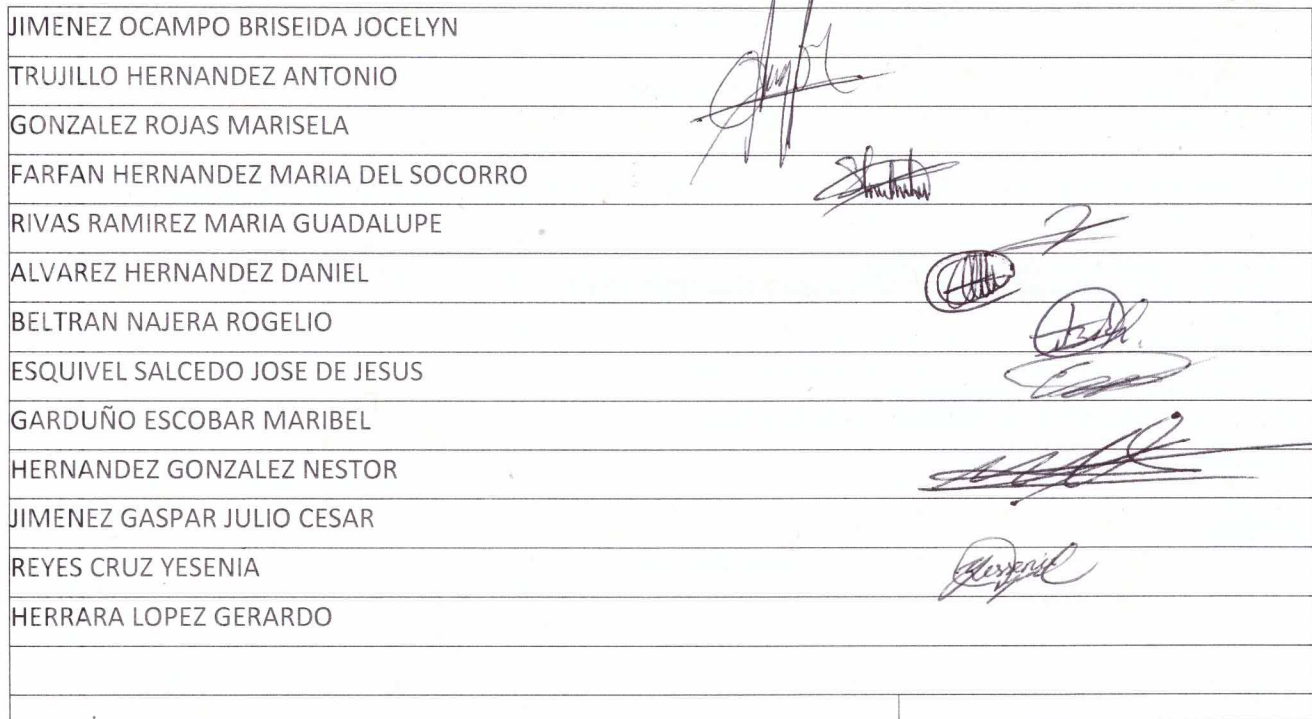 JIMENEZ OCAMPO BRISEIDA JOCELYN
TRUJILLO HERNANDEZ ANTONIO
GONZALEZ ROJAS MARISELA
FARFAN HERNANDEZ MARIA DEL SOCORRO
RIVAS RAMIREZ MARIA GUADALUPE
ALVAREZ HERNANDEZ DANIEL
BELTRAN NAJERA ROGELIO
ESQUIVEL SALCEDO JOSE DE JESUS
GARDUÑO ESCOBAR MARIBEL
HERNANDEZ GONZALEZ NESTOR
JIMENEZ GASPAR JULIO CESAR
REYES CRUZ YESENIA
HERRARA LOPEZ GERARDO